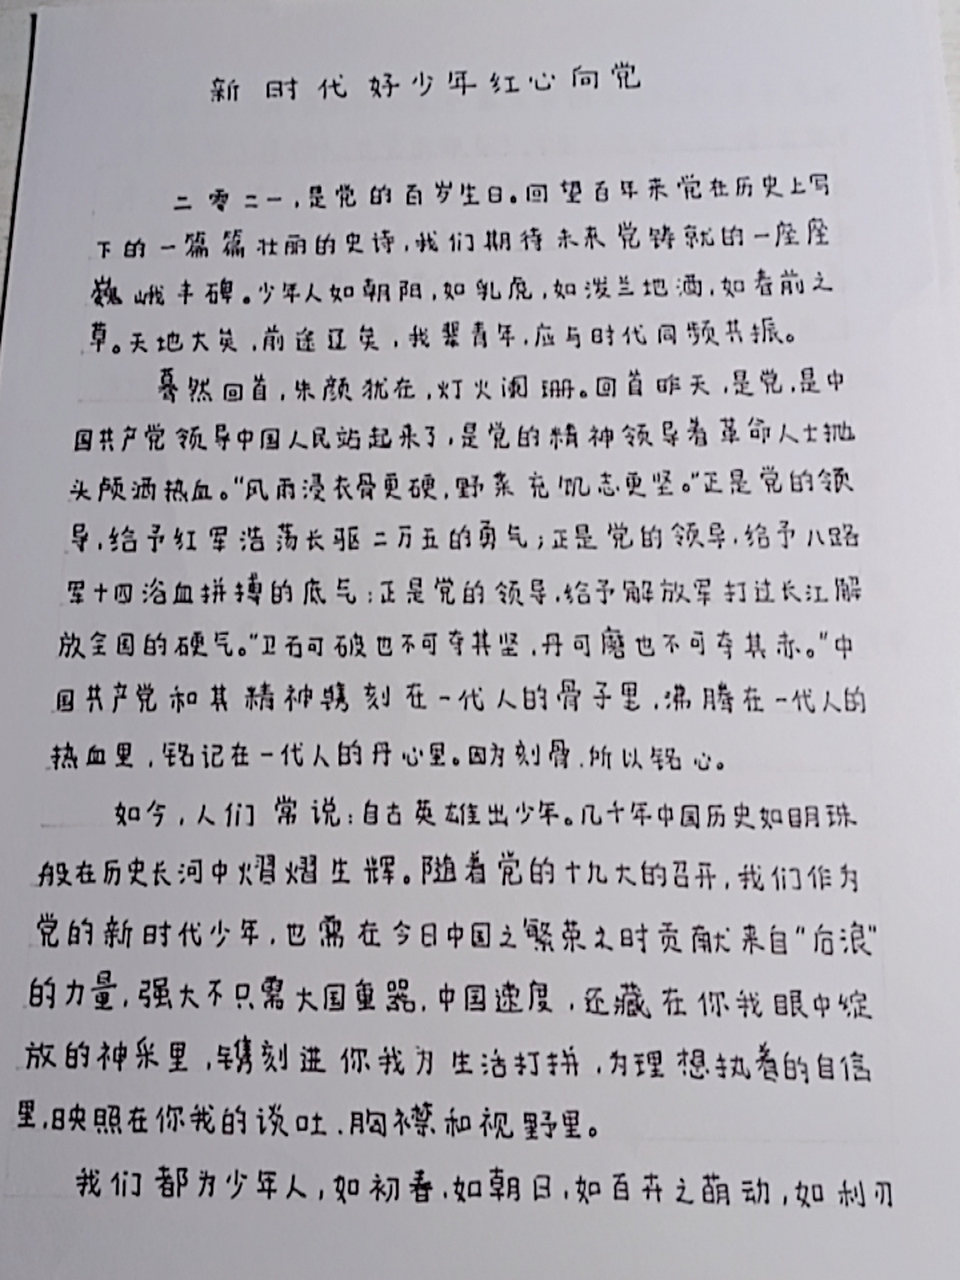 新时代好少年红心向党
二零二一，是党的百岁生日。回望百年来党在历史上写
下的一篇篇壮丽的史诗，我们期待未来党铸就的一座座
巍峨丰碑。少年人如朝阳，如乳虎，如泼兰地酒，如春前之
草。天地大矣，前途辽矣，我辈青年，应与时代同频共振。
蓦然回首，朱颜犹在，灯火阑珊。回首昨天，是党，是中
国共产党领导中国人民站起来了，是党的精神领导着革命人士抛
头颅洒热血。“风雨浸衣骨更硬，野菜充饥志更坚。”正是党的领
导，给予红军浩荡长驱二万五的勇气；正是党的领导，给予八路
军十四浴血拼搏的底气；正是党的领导，给予解放军打过长江解
放全国的硬气。“卫石可破也不可夺其坚，丹可磨也不可夺其赤。”中
国共产党和其精神镌刻在一代人的骨子里，沸腾在一代人的
热血里，铭记在一代人的丹心里。因为刻骨，所以铭心。
如今，人们常说：自古英雄出少年。几十年中国历史如明珠
般在历史长河中熠熠生辉。随着党的十九大的召开，我们作为
党的新时代少年，也需在今日中国之繁荣之时贡献来自“后浪”
的力量，强大不只需大国重器，中国速度，还藏在你我眼中绽
放的神采里，镌刻进你我为生活打拼，为理想执着的自信
里，映照在你我的谈吐、胸襟和视野里。
我们都为少年人，如初春，如朝日，如百卉之萌动，如利刃